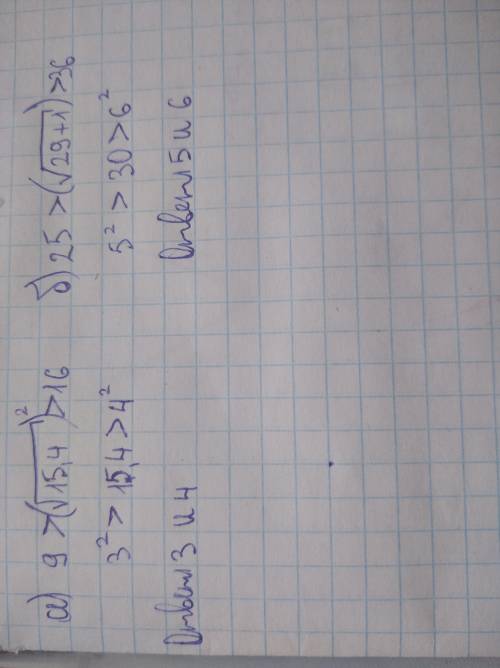 а) 9 > (√15,4)² > 16
3² > 15,4 > 4²
Ответ 3 и 4
б) 25 > (√29+1) > 36
5² > 30 > 6²
Ответ 5 и 6